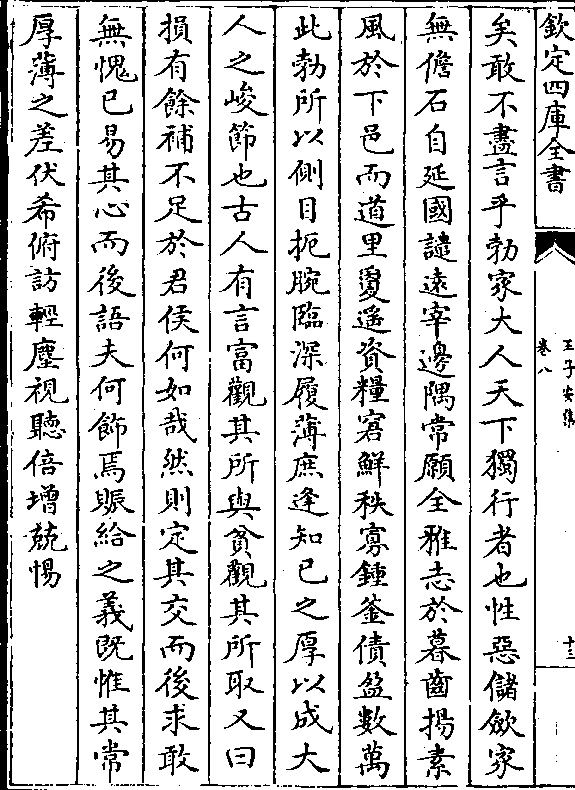 欽定四庫全書
王子安集
卷八
十三
矣敢不盡言乎勃家大人天下獨行者也性惡儲斂家
無儋石自延國譴遠宰邊隅常願全雅志於暮齒揚素
風於下邑而道里敻遥資糧窘鮮秩寡鍾釜債盈數萬
此勃所以側目扼腕臨深履薄庶逢知已之厚以成大
人之峻節也古人有言富觀其所與貧觀其所取又曰
損有餘補不足於君侯何如哉然則定其交而後求敢
無愧已易其心而後語夫何飾焉賑給之義既惟其常
厚薄之差伏希俯訪輕塵視聽倍增兢惕